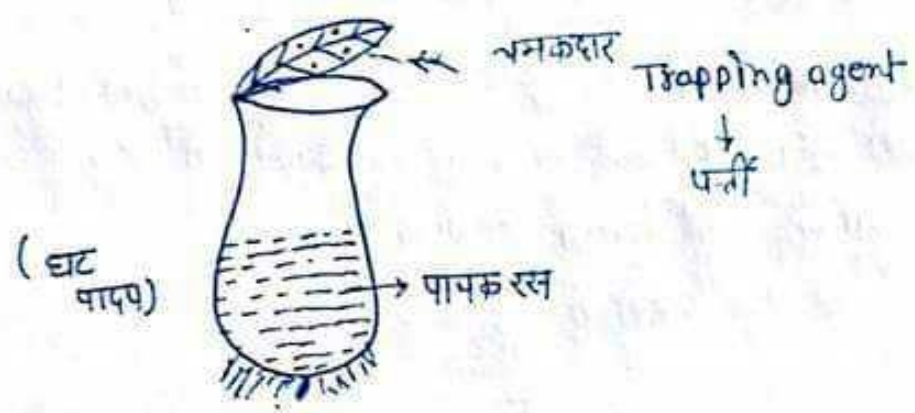 चमकदार
Trapping agent
↓
पत्ती
(घट
पादप)
पाचक रस